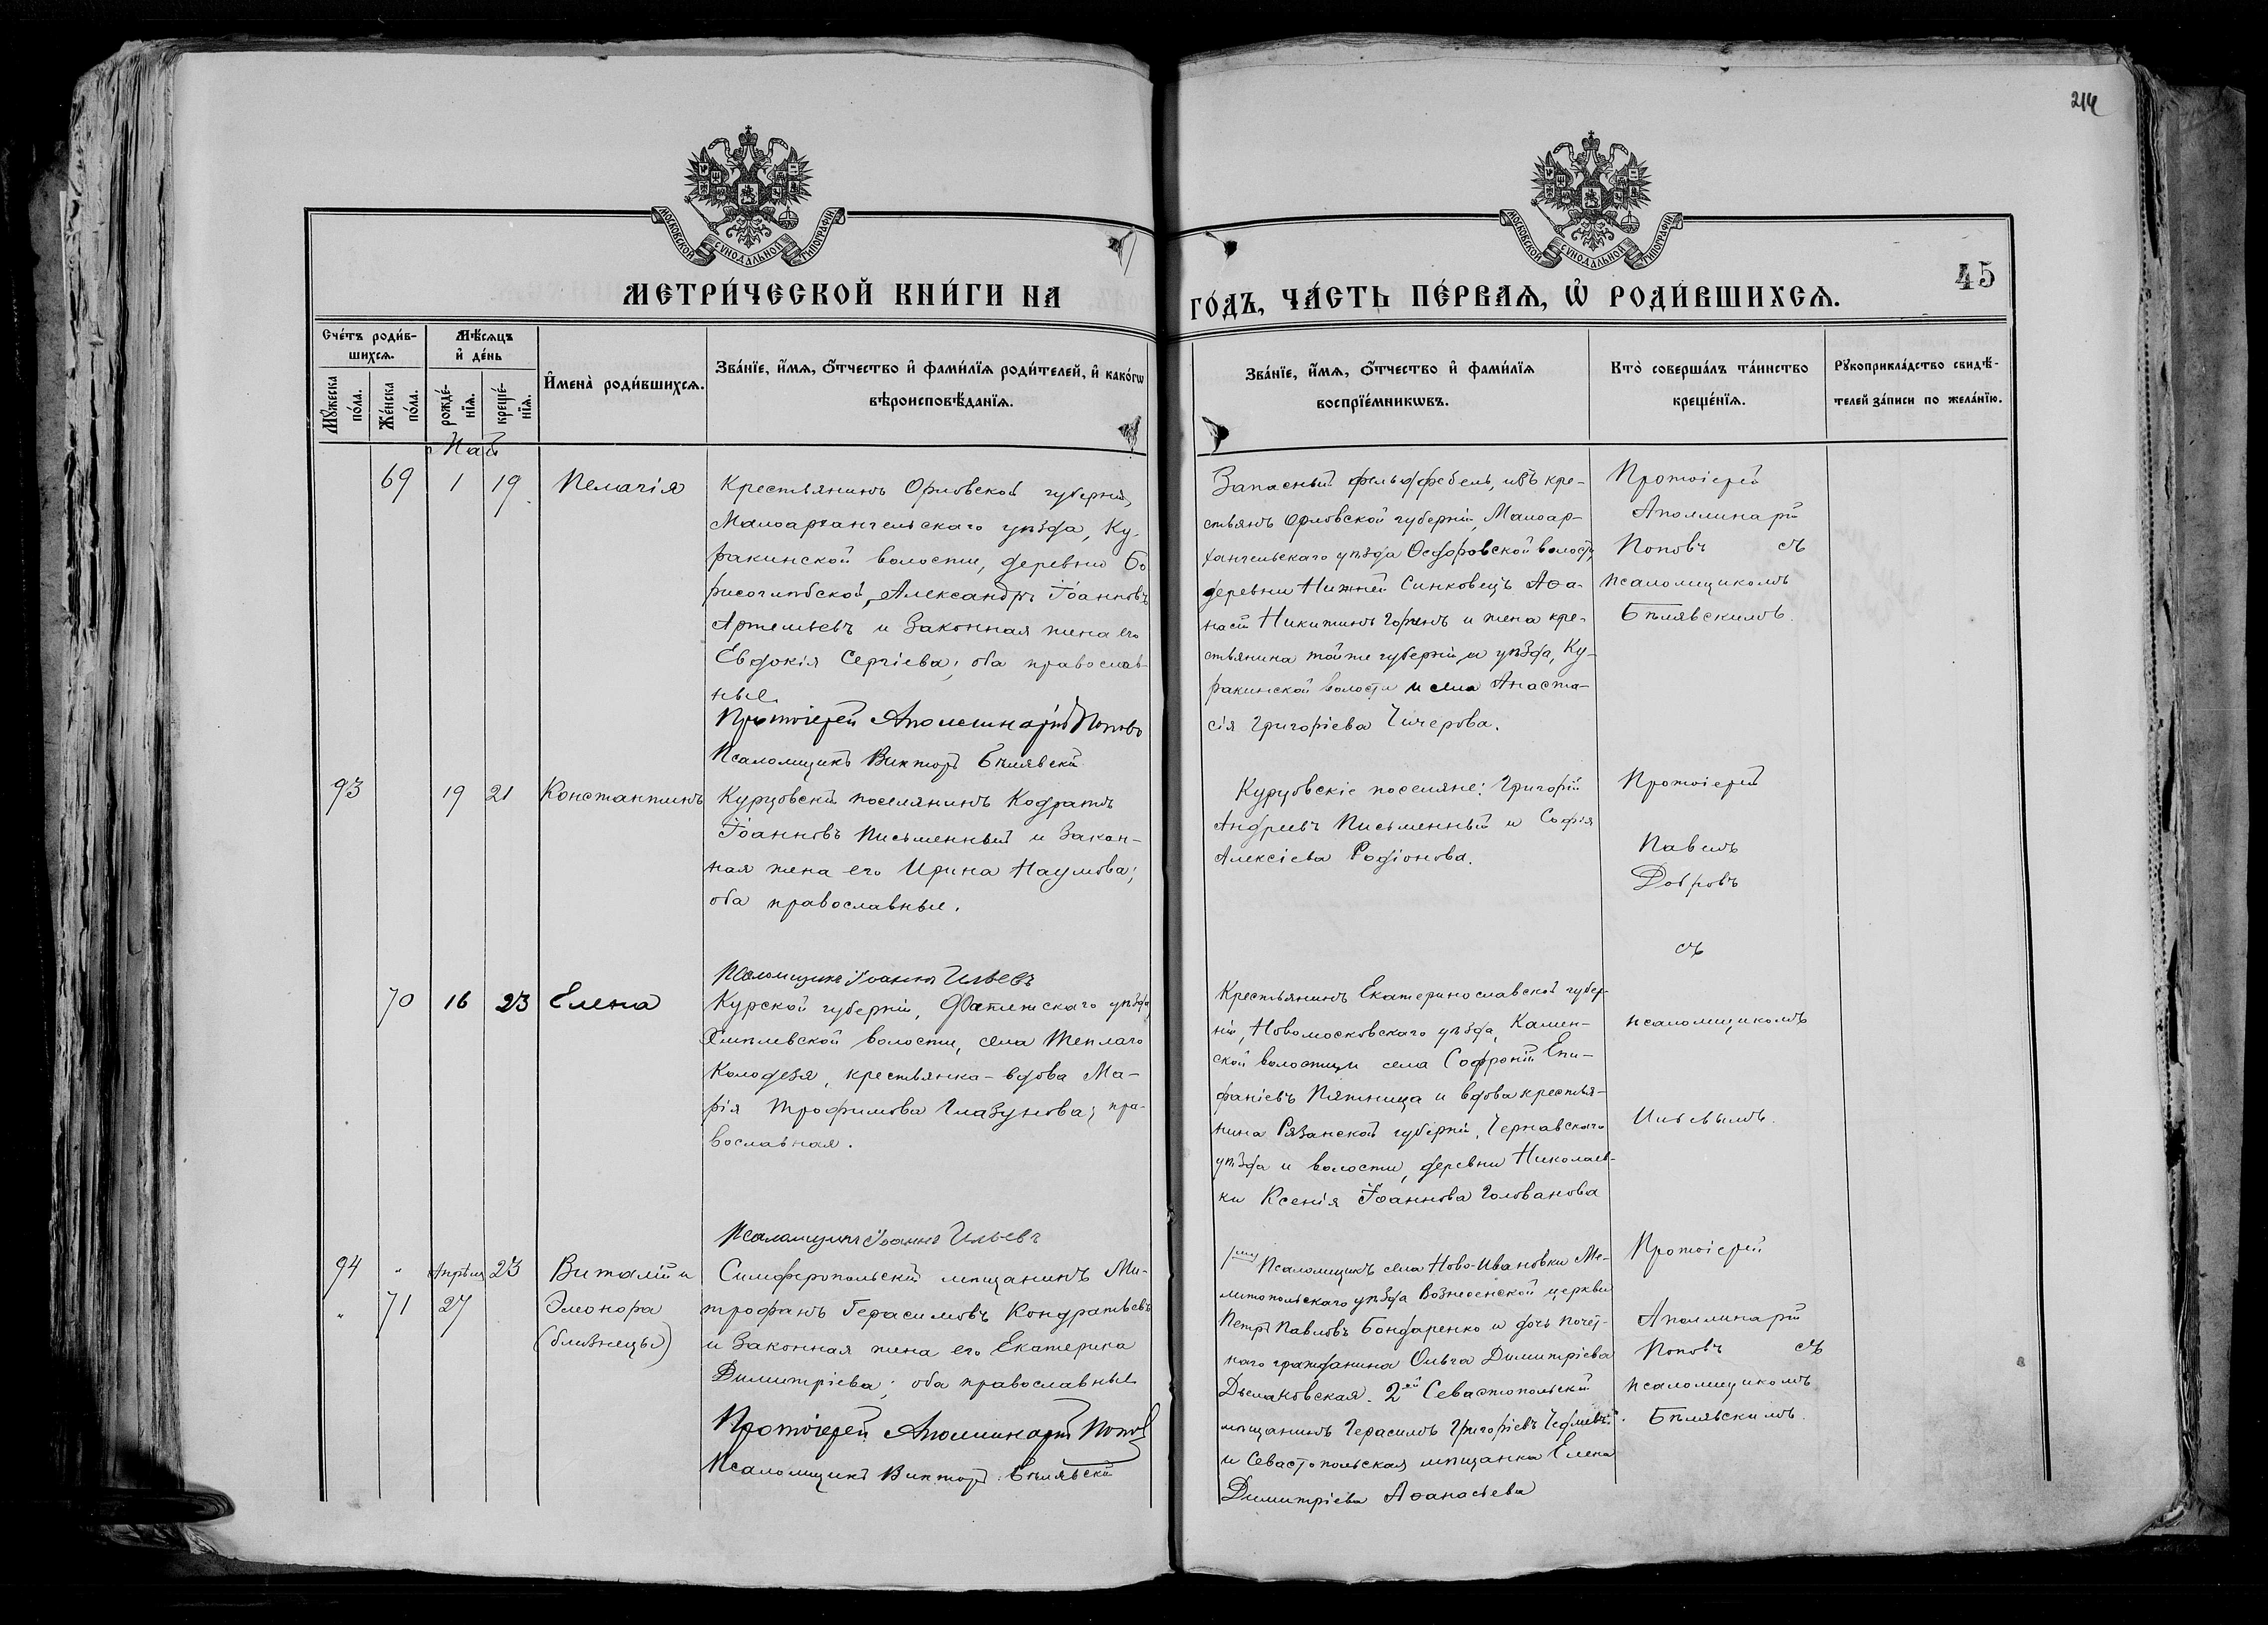 214
МОСКОВСКОЙ СѴНОДАЛЬНОЙ ТИПОГРАФІИ
МОСКОВСКОЙ СѴНОДАЛЬНОЙ ТИПОГРАФІИ
45
МЕТРИ́ЧЕСКОЙ КНИ́ГИ НА
ГО́ДЪ, ЧА́СТЬ ПЕ́РВАѦ, Ѡ҆ РОДИ́ВШИХСѦ.
Сче́тъ роди́в-
шихсѧ.
Мꙋ́жеска по́ла.
Же́нска по́ла.
Мѣ́сѧцъ
и҆ де́нь
рожде́-
нїѧ.
креще́-
нїѧ.
И҆мена̀ роди́вшихсѧ.
Зва́нїе, и҆́мѧ, ѻ҆́тчество и҆ фами́лїѧ роди́телей, и҆ како́гѡ
вѣроисповѣ́данїѧ.
Зва́нїе, и҆́мѧ, ѻ҆́тчество и҆ фами́лїѧ
воспрїе́мникѡвъ.
Кто̀ соверша́лъ та́инство
креще́нїѧ.
Рꙋкоприкла́дство свидѣ́-
телей за́писи по жела́нїю.
Май
69 1 19 Пелагія
Крестьянинъ Орловской губерніи,
Малоархангельскаго уѣзда, Ку-
ракинской волости, деревни Бо
рисоглѣбской, Александръ Іоанновъ
Артемьевъ и законная жена его
Евдокія Сергіева; оба православ-
ные
Протоіерей Аполлинарій Поповъ
Псаломщикъ Викторъ Бѣлявскій
Запасный фельдфебель, изъ кре-
стьянъ Орловской губерніи, Малоар-
хангельскаго уѣзда Ѳедоровской волости,
деревни Нижней Синковецъ Аѳа-
насій Никитинъ Горинъ и жена кре-
стьянина той же губерніи и уѣзда, Ку-
ракинской волости и села Анаста-
сія Григоріева Чичерова.
Протоіерей
Аполлинарій
Поповъ съ
псаломщикомъ
Бѣлявскимъ.
93 19 21 Константинъ
Курцовскій поселянинъ Кодратъ
Іоанновъ Письменный и закон-
ная жена его Ирина Наумова;
оба православные.
Псаломщикъ Іоаннъ Ильевъ
Курцовскіе поселяне: Григорій
Андреевъ Письменный и Софія
Алексіева Родіонова.
Протоіерей
Павелъ
Добровъ
съ
70 16 23 Елена
Курской губерніи, Фатежскаго уѣзда,
Хмѣлевской волости, села Теплаго
Колодезя, крестьянка-вдова Ма-
рія Трофимова Глазунова; пра-
вославная.
Псаломщикъ Іоаннъ Ильевъ
Крестьянинъ Екатеринославской губер-
ніи, Новомосковскаго уѣзда, Камен-
ской волости и села Софроній Епи-
фаніевъ Пятница и вдова крестья-
нина Рязанской губерніи, Чернавскаго
уѣзда и волости, деревни Николаев-
ки Ксенія Іоаннова Голованова
псаломщикомъ
Ильевымъ.
94 " Апрѣля 23 Виталій и
" 71 27 Элеонора
(близнецы)
Симферопольскій мѣщанинъ Ми-
трофанъ Герасимовъ Кондратьевъ
и законная жена его Екатерина
Димитріева; оба православные
Протоіерей Аполлинарій Поповъ
Псаломщикъ Викторъ Бѣлявскій
Псаломщикъ села Ново-Ивановки Ме-
литопольскаго уѣзда Вознесенской церкви
Петръ Павловъ Бондаренко и дочь почет-
наго гражданина Ольга Димитріева
2ой Севастопольскій
мѣщанинъ Герасимъ Григоріевъ
и Севастопольская мѣщанка Елена
Димитріева Аѳанасьева
Протоіерей
Аполлинарій
Поповъ съ
псаломщикомъ
Бѣлявскимъ.